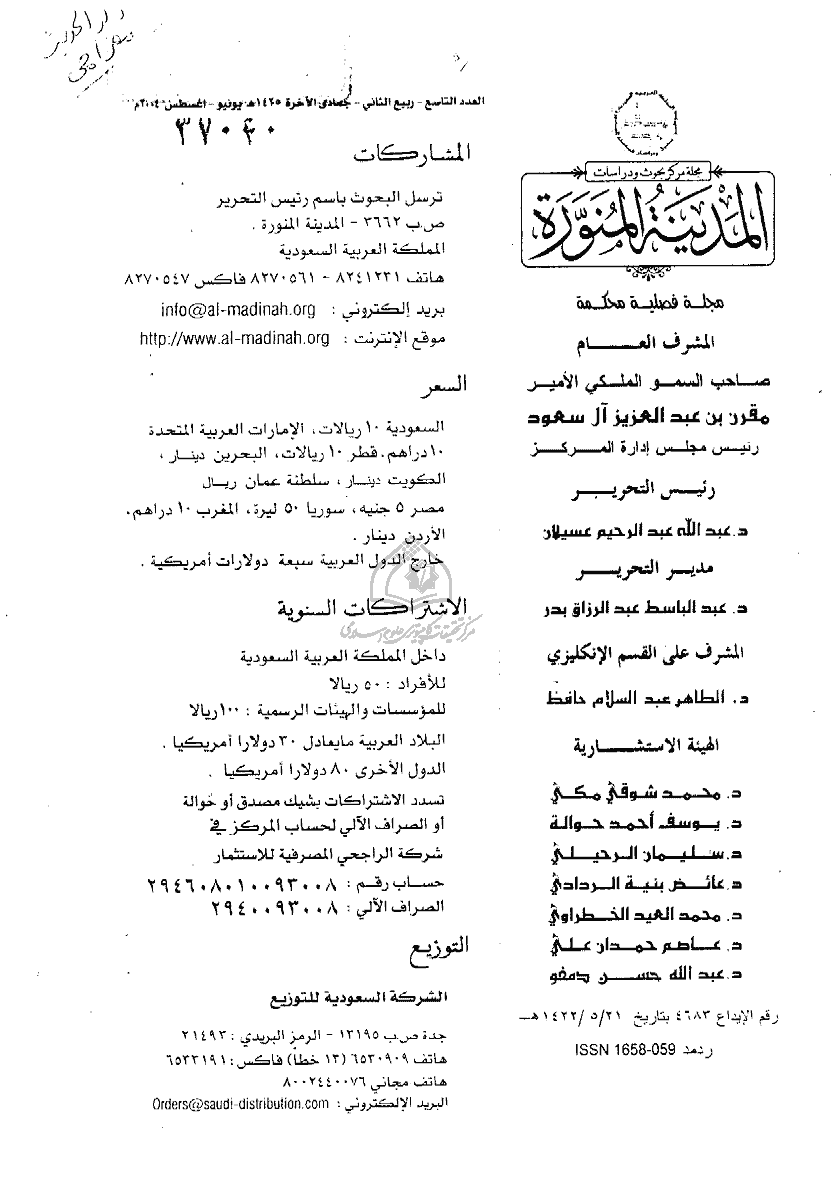 العدد التاسع - ربيع الثاني - جمادى الآخرة ١٤٢٥هـ يونيو - أغسطس ٢٠٠٤م
مجلة مركز بحوث ودراسات
المدينة المنورة
مجلة فصلية محكمة
المشرف العــــام
صاحب السمو الملكي الأمير
مقرن بن عبد العزيز آل سعود
رئيس مجلس إدارة المركز
رئيس التحريـــر
د. عبد الله عبد الرحيم عسيلان
مدير التحريـــر
د. عبد الباسط عبد الرزاق بدر
المشرف على القسم الإنكليزي
د. الطاهر عبد السلام حافظ
الهيئة الاستشــارية
د. محمد شوقي مكي
د. يوسف أحمد حوالة
د. سليمان الرحيلي
د. عائض بنية الردادي
د. محمد العيد الخطراوي
د. عاصم حمدان علي
د. عبد الله حسن
رقم الإيداع ٤٦٨٣ بتاريخ ١٤٢٢/٥/٢١هـ
ردمد ISSN 1658-059
المشاركات
ترسل البحوث باسم رئيس التحرير
ص.ب ٣٦٦٢ - المدينة المنورة .
المملكة العربية السعودية
هاتف ٨٢٤١٢٣١ - ٨٢٧٠٥٦١ فاكس ٨٢٧٠٥٤٧
بريد إلكتروني : info@al-madinah.org
موقع الإنترنت : http://www.al-madinah.org
السعر
السعودية ١٠ ريالات، الإمارات العربية المتحدة
١٠ دراهم، قطر ١٠ ريالات، البحرين دينار ،
الكويت دينار ، سلطنة عمان ريال
مصر ٥ جنيه، سوريا ٥٠ ليرة، المغرب ١٠ دراهم.
الأردن دينار .
خارج الدول العربية سبعة دولارات أمريكية .
الاشتراكات السنوية
مرکز تحقیقات کامپیوتری علوم اسلامی
داخل المملكة العربية السعودية
للأفراد : ٥٠ ريالا
للمؤسسات والهيئات الرسمية : ١٠٠ ريالا
البلاد العربية مايعادل ٣٠ دولارا أمريكيا .
الدول الأخرى ٨٠ دولارا أمريكيا .
تسدد الاشتراكات بشيك مصدق أو حوالة
أو الصراف الآلي لحساب المركز في
شركة الراجحي المصرفية للاستثمار
حساب رقم : ٢٩٤٦٠٨٠١٠٠٩٣٠٠٨
الصراف الآلي : ٢٩٤٠٠٩٣٠٠٨
التوزيع
الشركة السعودية للتوزيع
جدة ص.ب ١٣١٩٥ - الرمز البريدي : ٢١٤٩٣
هاتف ٦٥٣٠٩٠٩ (١٣ خطا) فاكس : ٦٥٣٣١٩١
هاتف مجاني ٨٠٠٢٤٤٠٠٧٦
البريد الإلكتروني : Orders@saudi-distribution.com